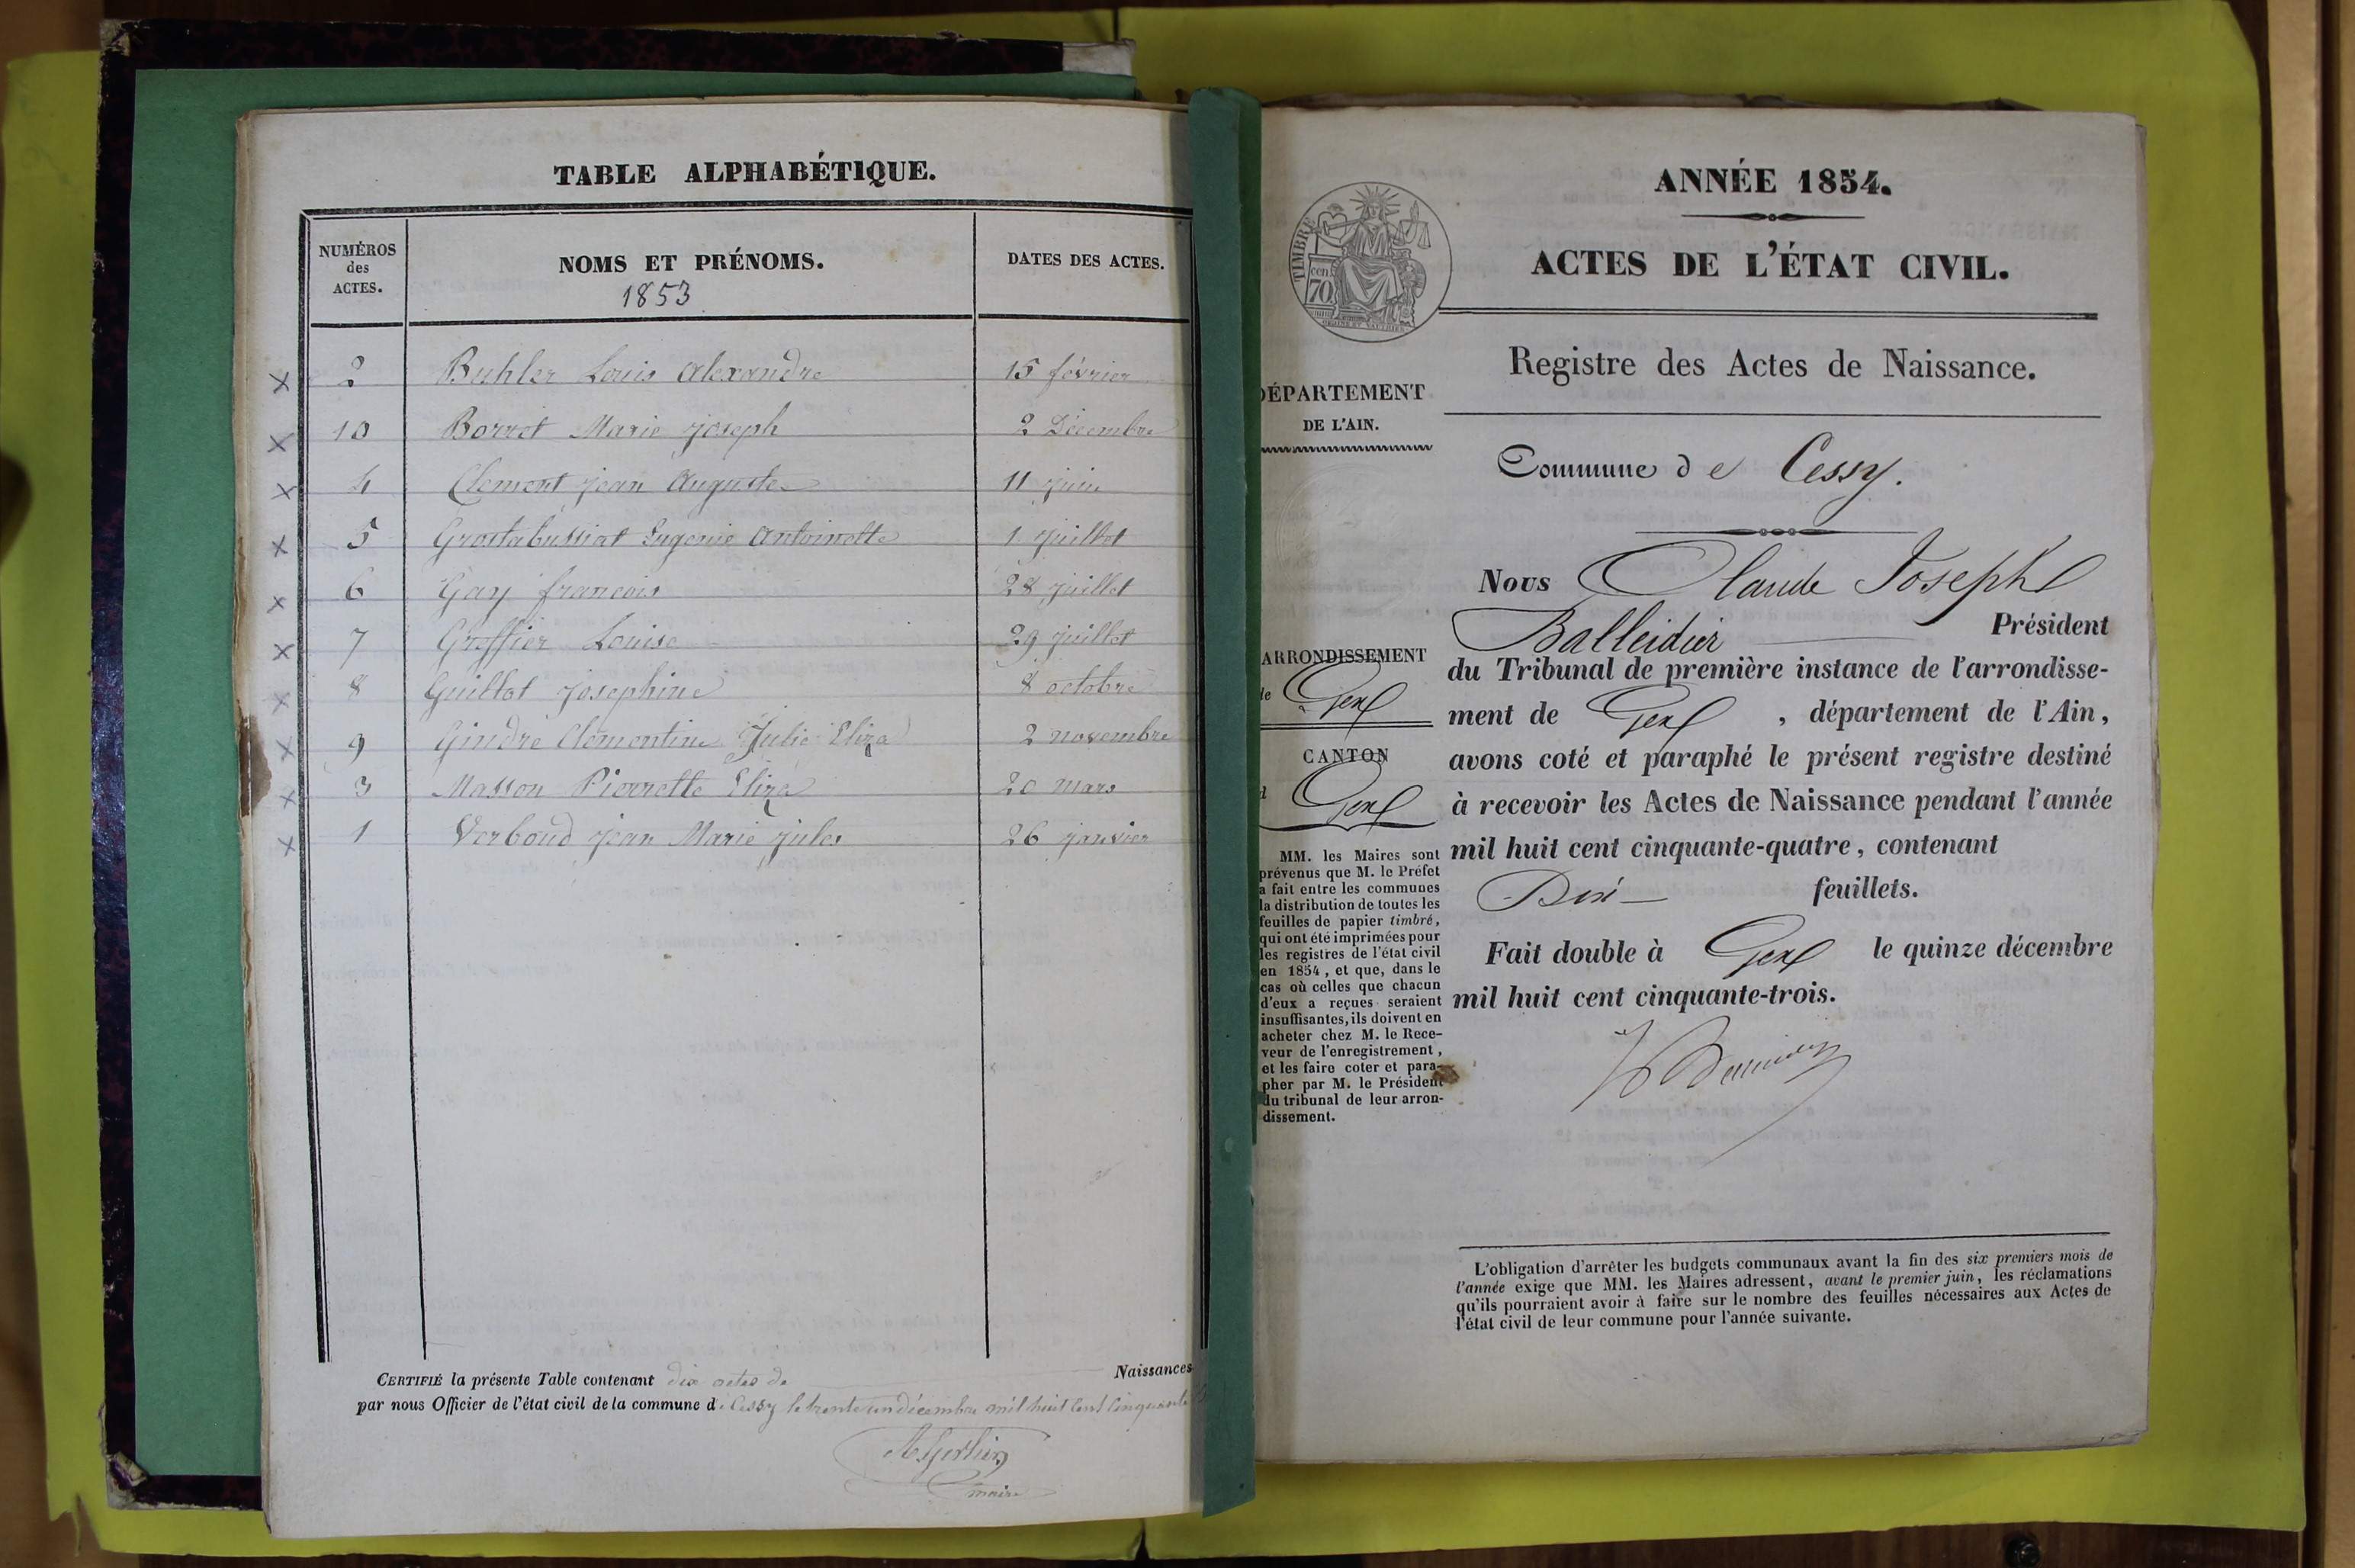 TABLE ALPHABÉTIQUE.
NUMÉROS des ACTES.
NOMS ET PRÉNOMS.
1853
DATES DES ACTES.
2 Buhler Louis Alexandre 15 février
10 Borrot Marie joseph 2 Décembre
4 Clement jean Auguste 11 juin
5 Grostabussiat Eugenie Antoinette 1 juillet
6 Gay françois 28 juillet
7 Greffier Louise 29 juillet
8 Guillot josephine 8 octobre
9 Gindre Clémentine Julie Eliza 2 novembre
3 Masson Pierrette Eliza 20 mars
1 Verboud jean Marie jules 26 janvier
CERTIFIÉ la présente Table contenant dix actes de Naissances
par nous Officier de l'état civil de la commune de Cessy le trente un décembre mil huit cent cinquante
maire
ANNÉE 1854.
ACTES DE L'ÉTAT CIVIL.
TIMBRE
cen.
70
Registre des Actes de Naissance.
DÉPARTEMENT
DE L'AIN.
Commune de Cessy.
Nous Claude Joseph
Balleidier Président
du Tribunal de première instance de l'arrondisse-
ment de Gex, département de l'Ain,
avons coté et paraphé le présent registre destiné
à recevoir les Actes de Naissance pendant l'année
mil huit cent cinquante-quatre, contenant
Dix feuillets.
Fait double à Gex le quinze décembre
mil huit cent cinquante-trois.
ARRONDISSEMENT
de Gex
CANTON
d Gex
MM. les Maires sont
prévenus que M. le Préfet
a fait entre les communes
la distribution de toutes les
feuilles de papier timbré,
qui ont été imprimées pour
les registres de l'état civil
en 1854, et que, dans le
cas où celles que chacun
d'eux a reçues seraient
insuffisantes, ils doivent en
acheter chez M. le Rece-
veur de l'enregistrement,
et les faire coter et para-
pher par M. le Président
du tribunal de leur arron-
dissement.
L'obligation d'arrêter les budgets communaux avant la fin des six premiers mois de
l'année exige que MM. les Maires adressent, avant le premier juin, les réclamations
qu'ils pourraient avoir à faire sur le nombre des feuilles nécessaires aux Actes de
l'état civil de leur commune pour l'année suivante.